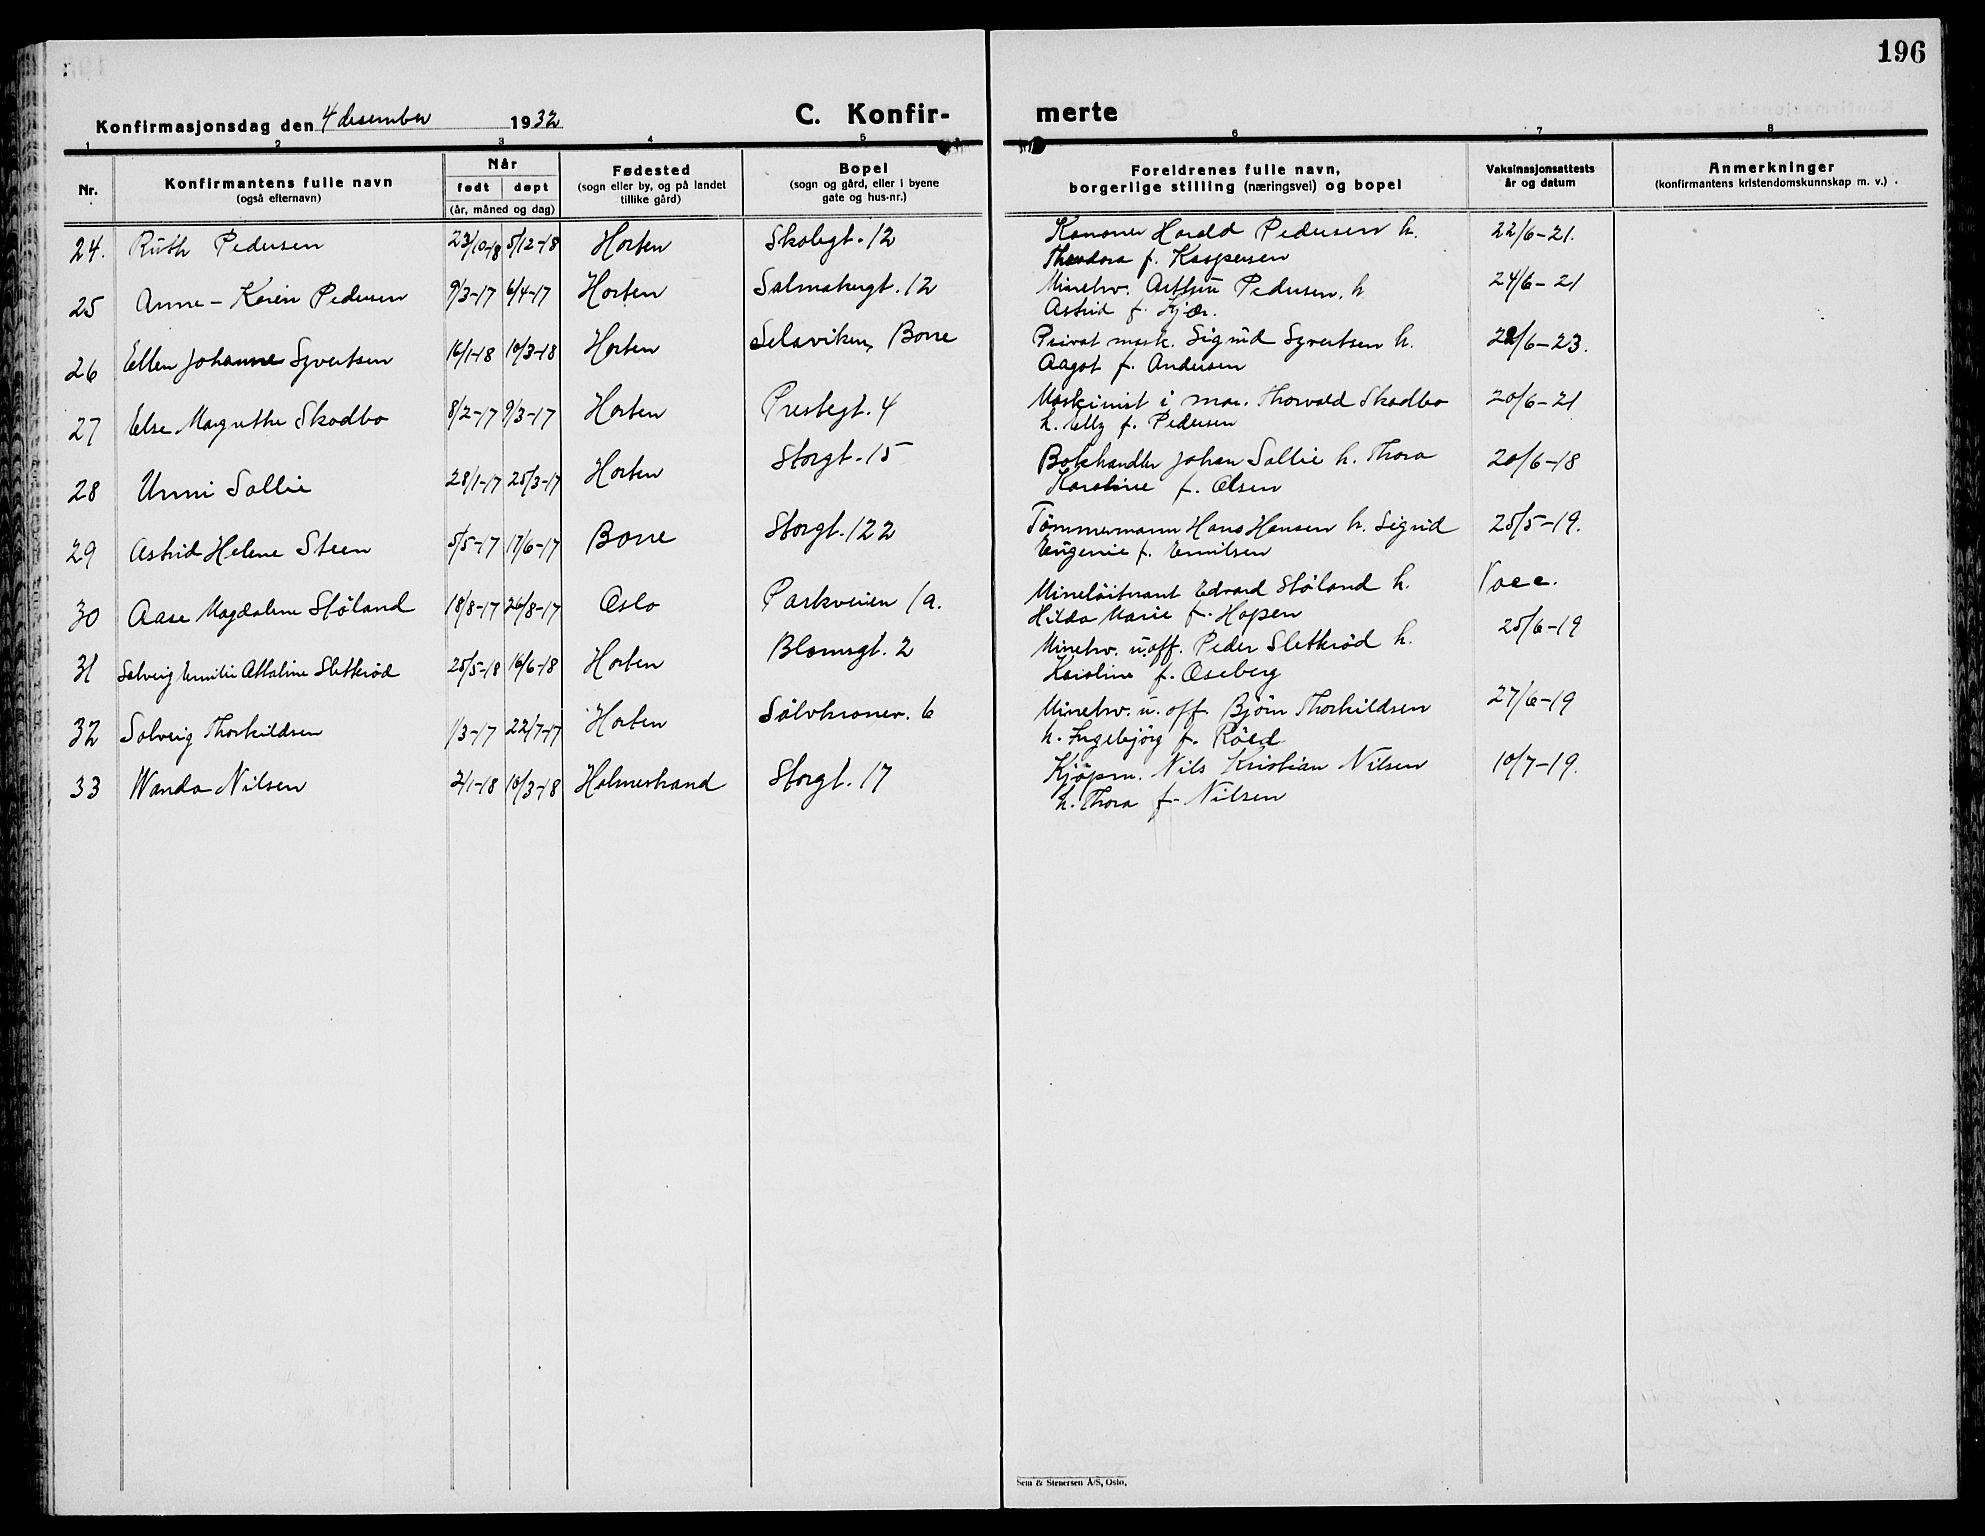 196
Konfirmasjonsdag den 4 desember 1932 C. Konfir- merte
1 2 3 4 5 6 7 8
Nr. Konfirmantens fulle navn (også efternavn) Når født døpt (år, måned og dag) Fødested (sogn eller by, og på landet tillike gård) Bopel (sogn og gård, eller i byene gate og hus-nr.) Foreldrenes fulle navn, borgerlige stilling (næringsvei) og bopel Vaksinasjonsattests år og datum Anmerkninger (konfirmantens kristendomskunnskap m. v.)
24. Ruth Pedersen 23/10-18 5/12-18 Horten Skolegt. 12 Kanoner Harald Pedersen h. 22/6-21.
Theodora f. Kaspersen
25 Anne-Karin Pedersen 9/3-17 6/4-17 Horten Salmakergt. 12 Minetrv. Arthur Pedersen. h 24/6-21
Astrid f. Kjær.
26 Ellen Johanne Syvertsen 16/1-18 10/3-18 Horten Selaviken, Borre Privat mask. Sigurd Syvertsen h. 22/6-23.
Aagot f. Andersen
27 Else Margrethe Skodbo 8/2-17 9/3-17 Horten Prestegt. 4 Maskinist i mar. Thorvald Skodbo 20/6-21
h. Elly f. Pedersen
28 Unni Sollie 28/1-17 25/3-17 Horten Storgt. 15 Bokhandler Johan Sollie h. Thora 20/6-18
Karoline f. Olsen
29 Astrid Helene Steen 5/5-17 17/6-17 Borre Storgt. 122 Tømmermann Hans Hansen h. Sigrid 25/5-19.
Eugenie f. Emilsen
30 Aase Magdalene Støland 18/8-17 26/8-17 Oslo Parkveien 1a. Mineløitnant Edvard Støland h. Vacc.
Hilda Marie f. Hopen
31 Solveig Emilie Attaline Sletterød 25/5-18 16/6-18 Horten Blomsgt. 2 Minetrv. u.off. Peder Sletterød h. 25/6-19
Karoline f. Oseberg
32 Solveig Thorkildsen 1/3-17 22/7-17 Horten Sølvkronev. 6 Minetrv. u. off. Bjørn Thorkildsen 27/6-19
h. Ingebjørg f. Røed
33 Wanda Nilsen 2/1-18 10/3-18 Holmestrand Storgt. 17 Kjøpm. Nils Kristian Nilsen 10/7-19.
h. Thora f. Nilsen
Sem & Stenersen A/S, Oslo.